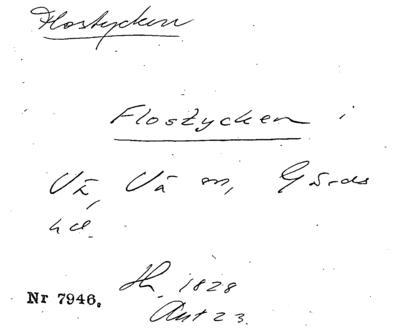 Flostycken
Flostycken i
Vä, Vä sn, Gärds
hd.
Nr 7946. Hh. 1828
Akt 23.